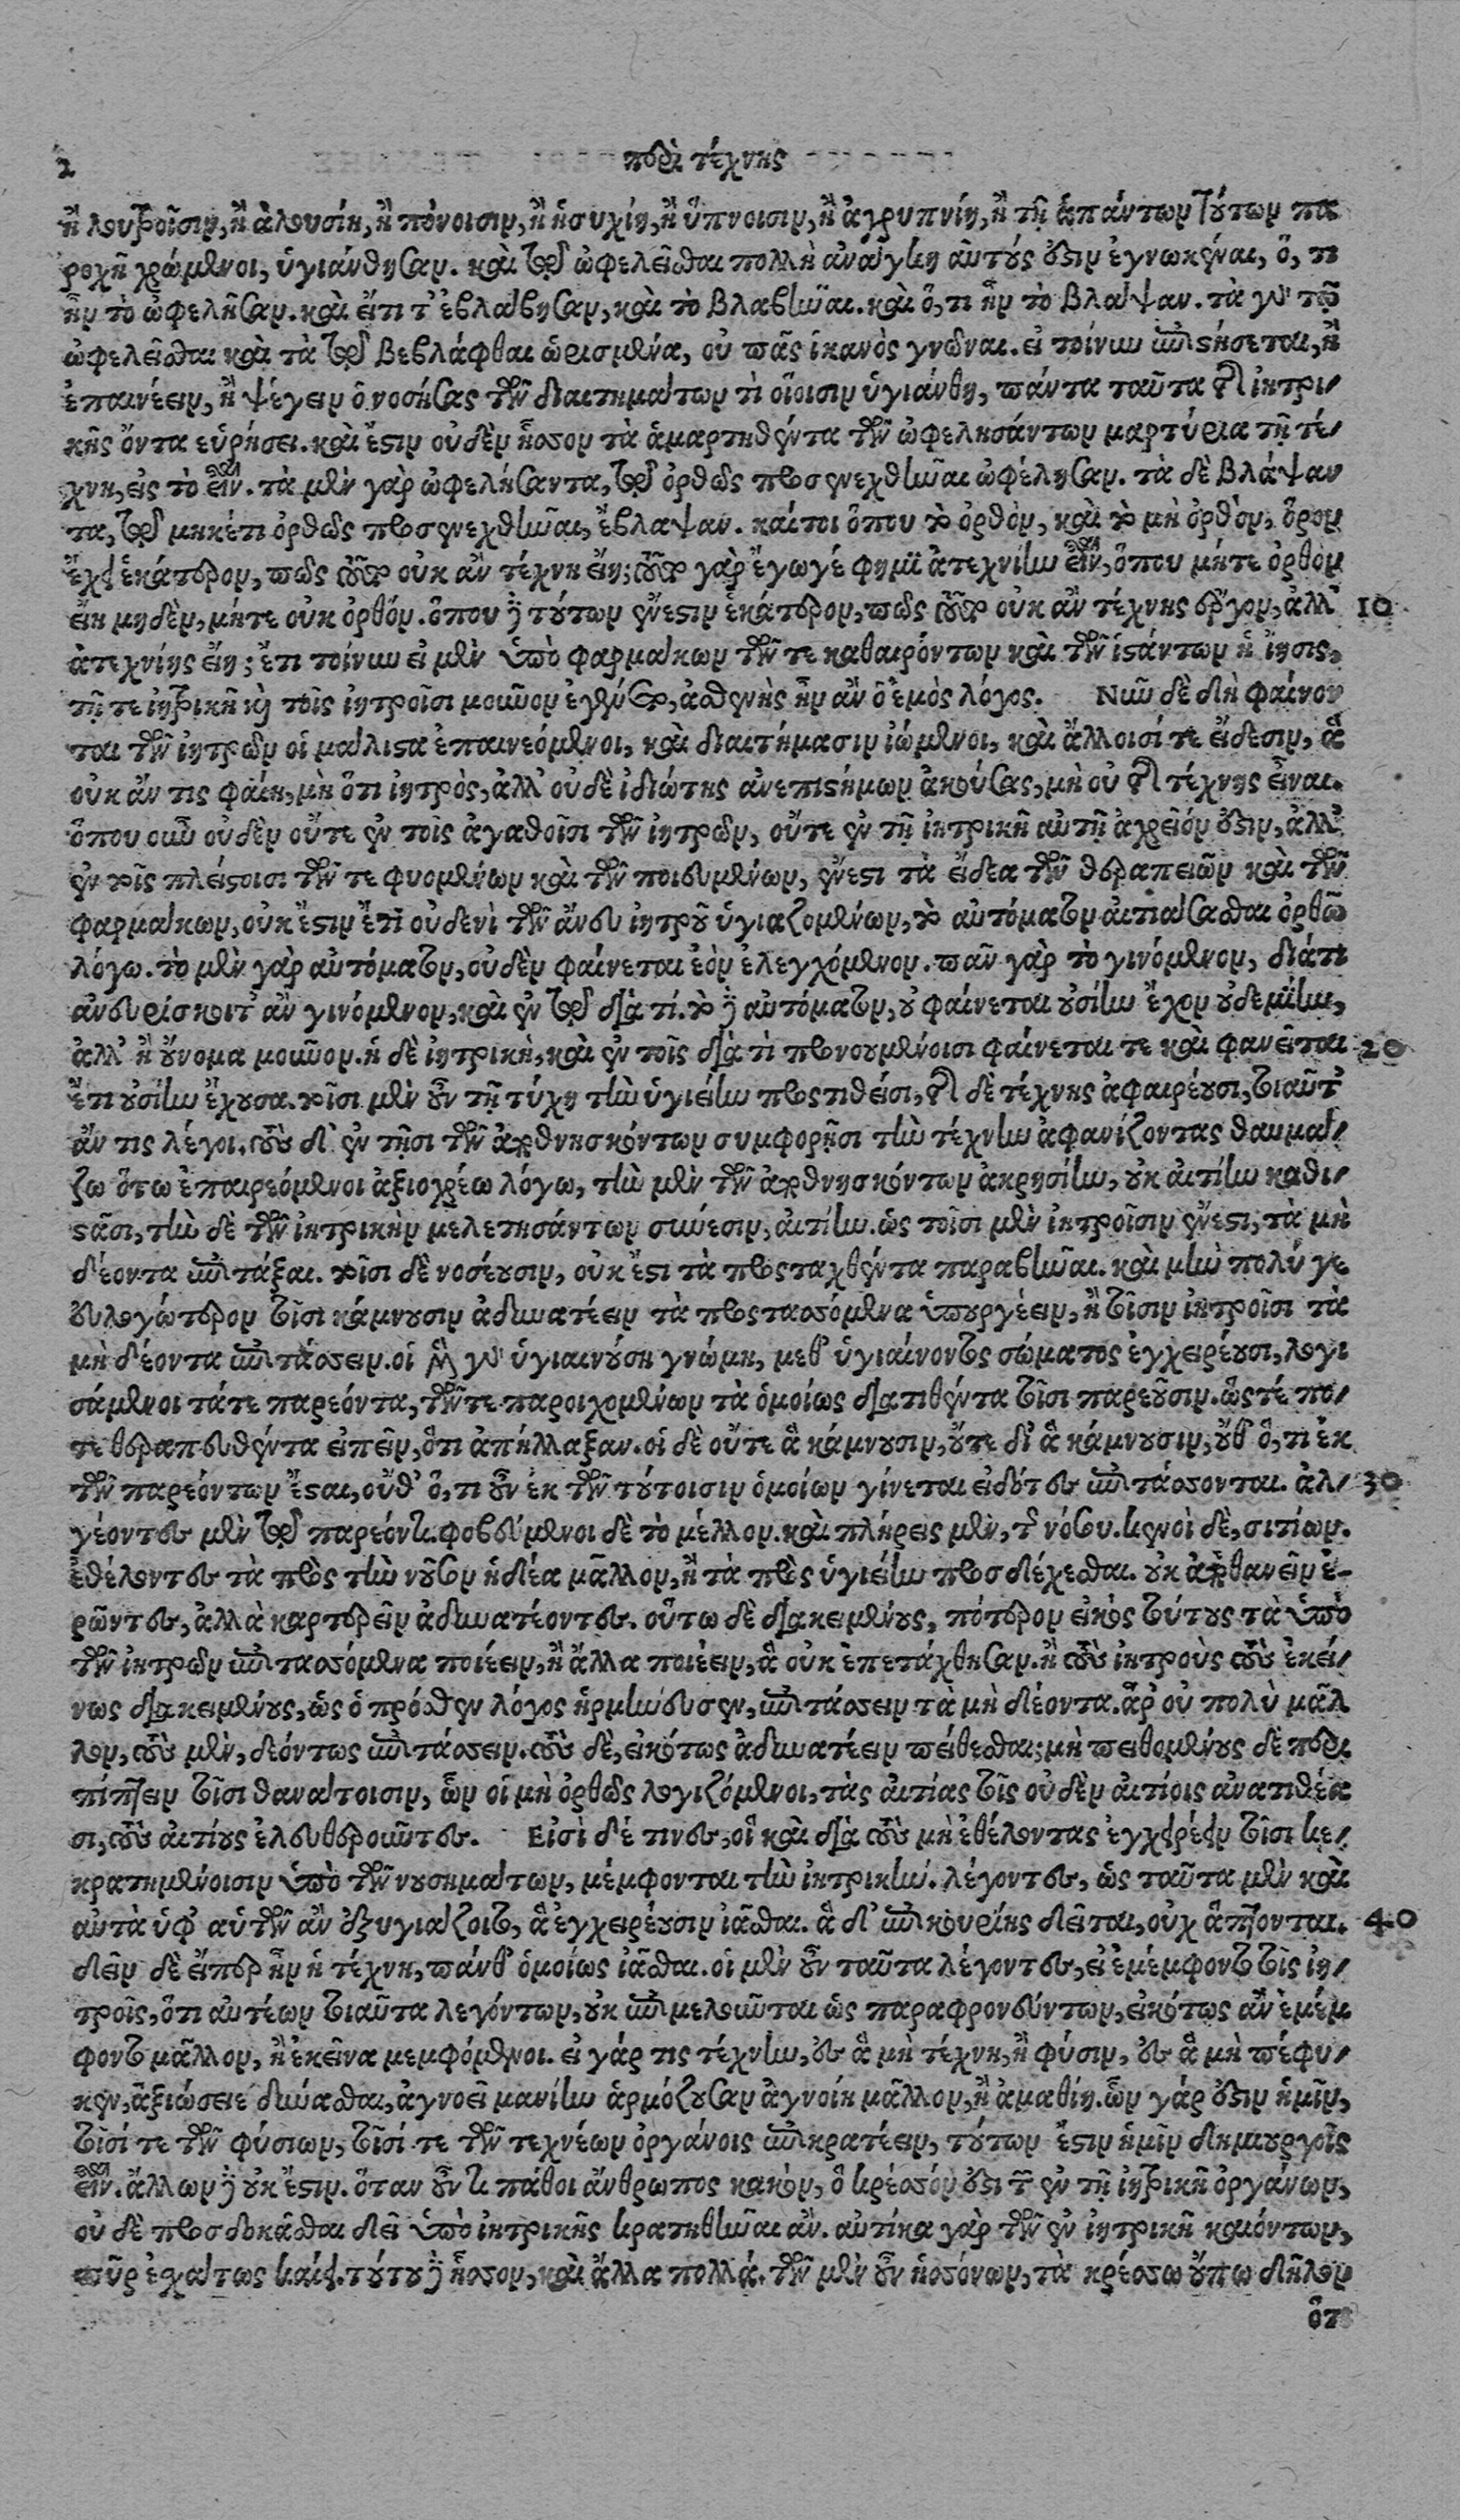 2 περὶ τέχνης
ἢ λουτροῖσιν, ἢ ἀλουσίη, ἢ πόνοισιν, ἢ ἡσυχίῃ, ἢ ὕπνοισιν, ἢ ἀγρυπνίῃ, ἢ τῇ ἁπάντων τούτων πα
ροχῇ χρώμενοι, ὑγιάνθησαν. καὶ τῷ ὠφελεῖσθαι πολλὴ ἀνάγκη αὐτούς ἐστιν ἐγνωκέναι, ὅ, τι
ἦν τὸ ὠφελῆσαν. καὶ εἴ τι τ' ἐβλάβησαν, καὶ τὸ βλαβῆναι. καὶ ὅ, τι ἦν τὸ βλάψαν. τὰ γὰρ τῷ
ὠφελεῖσθαι καὶ τὰ τῷ βεβλάφθαι ὡρισμένα, οὐ πᾶς ἱκανὸς γνῶναι. εἰ τοίνυν ἐπιστήσεται, ἢ
ἐπαινέειν, ἢ ψέγειν ὁ νοσήσας τῶν διαιτημάτων τὶ οἵοισιν ὑγιάνθη, πάντα ταῦτα τῆς ἰητρι-
κῆς ὄντα εὑρήσει. καὶ ἔστιν οὐδὲν ἧσσον τὰ ἁμαρτηθέντα τῶν ὠφελησάντων μαρτύρια τῇ τέ-
χνῃ, εἰς τὸ εἶναι. τὰ μὲν γὰρ ὠφελήσαντα, τῷ ὀρθῶς προσενεχθῆναι ὠφέλησαν. τὰ δὲ βλάψαν
τα, τῷ μηκέτι ὀρθῶς προσενεχθῆναι, ἔβλαψαν. καίτοι ὅπου τὸ ὀρθὸν, καὶ τὸ μὴ ὀρθὸν, ὅρον
ἔχει ἑκάτερον, πῶς τοῦτο οὐκ ἂν τέχνη εἴη; τοῦτο γὰρ ἔγωγέ φημι ἀτεχνίην εἶναι, ὅπου μήτε ὀρθὸν
εἴη μηδὲν, μήτε οὐκ ὀρθόν. ὅπου δὲ τούτων ἔνεστιν ἑκάτερον, πῶς τοῦτο οὐκ ἂν τέχνης ἔργον, ἀλλ' 10
ἀτεχνίης εἴη; ἔτι τοίνυν εἰ μὲν ὑπὸ φαρμάκων τῶν τε καθαιρόντων καὶ τῶν ἱστάντων ἡ ἴησις,
τῇ τε ἰητρικῇ καὶ τοῖς ἰητροῖσι μοῦνον ἐγένετο, ἀσθενὴς ἦν ἂν ὁ ἐμὸς λόγος. Νῦν δὲ δὴ φαίνον
ται τῶν ἰητρῶν οἱ μάλιστα ἐπαινεόμενοι, καὶ διαιτήμασιν ἰώμενοι, καὶ ἄλλοισί τε εἴδεσιν, ἃ
οὐκ ἄν τις φαίη, μὴ ὅτι ἰητρὸς, ἀλλ' οὐδὲ ἰδιώτης ἀνεπιστήμων ἀκούσας, μὴ οὐ τῆς τέχνης εἶναι.
ὅπου οὖν οὐδὲν οὔτε ἐν τοῖς ἀγαθοῖσι τῶν ἰητρῶν, οὔτε ἐν τῇ ἰητρικῇ αὐτῇ ἀχρεῖόν ἐστιν, ἀλλ'
ἐν τοῖς πλείστοισι τῶν τε φυομένων καὶ τῶν ποιευμένων, ἔνεστι τὰ εἴδεα τῶν θεραπειῶν καὶ τῶν
φαρμάκων, οὐκ ἔστιν ἔτι οὐδενὶ τῶν ἄνευ ἰητροῦ ὑγιαζομένων, τὸ αὐτόματον αἰτιάσασθαι ὀρθῷ
λόγῳ. τὸ μὲν γὰρ αὐτόματον, οὐδὲν φαίνεται ἐὸν ἐλεγχόμενον. πᾶν γὰρ τὸ γινόμενον, διάτι
ἀνευρίσκοιτ' ἂν γινόμενον, καὶ ἐν τῷ διὰ τί. τὸ δὲ αὐτόματον, οὐ φαίνεται οὐσίην ἔχον οὐδεμίην,
ἀλλ' ἢ οὔνομα μοῦνον. ἡ δὲ ἰητρικὴ, καὶ ἐν τοῖς διὰ τὶ προνοουμένοισι φαίνεται τε καὶ φανεῖται 20
ἔτι οὐσίην ἔχουσα. τοῖσι μὲν οὖν τῇ τύχῃ τὴν ὑγιείην προστιθεῖσι, τῆς δὲ τέχνης ἀφαιρέουσι, τοιαῦτ'
ἄν τις λέγοι. τοὺς δ' ἐν τῇσι τῶν ἀποθνησκόντων συμφορῇσι τὴν τέχνην ἀφανίζοντας θαυμά-
ζω ὅτῳ ἐπαιρεόμενοι ἀξιοχρέῳ λόγῳ, τὴν μὲν τῶν ἀποθνησκόντων ἀκρησίην, οὐκ αἰτίην καθι-
στᾶσι, τὴν δὲ τῶν ἰητρικὴν μελετησάντων σύνεσιν, αἰτίην. ὡς τοῖσι μὲν ἰητροῖσιν ἔνεστι, τὰ μὴ
δέοντα ἐπιτάξαι. τοῖσι δὲ νοσέουσιν, οὐκ ἔστι τὰ προσταχθέντα παραβῆναι. καὶ μὴν πολύ γε
εὐλογώτερον τοῖσι κάμνουσιν ἀδυνατέειν τὰ προστασσόμενα ὑπουργέειν, ἢ τοῖσιν ἰητροῖσι τὰ
μὴ δέοντα ἐπιτάσσειν. οἱ μὲν γὰρ ὑγιαινούσῃ γνώμῃ, μεθ' ὑγιαίνοντος σώματος ἐγχειρέουσι, λογι
σάμενοι τάτε παρεόντα, τῶν τε παροιχομένων τὰ ὁμοίως διατιθέντα τοῖσι παρεοῦσιν. ὥστέ πο-
τε θεραπευθέντα εἰπεῖν, ὅτι ἀπήλλαξαν. οἱ δὲ οὔτε ἃ κάμνουσιν, οὔτε δι' ἃ κάμνουσιν, οὔθ' ὅ, τι ἐκ
τῶν παρεόντων ἔσται, οὔθ' ὅ, τι οὖν ἐκ τῶν τούτοισιν ὁμοίων γίνεται εἰδότες ἐπιτάσσονται. ἀλ- 30
γέοντες μὲν τῷ παρεόντι. φοβεύμενοι δὲ τὸ μέλλον. καὶ πλήρεις μὲν, τῆς νόσου. κενοὶ δὲ, σιτίων.
ἐθέλοντες τὰ πρὸς τὴν νοῦσον ἡδέα μᾶλλον, ἢ τὰ πρὸς ὑγιείην προσδέχεσθαι. οὐκ ἀποθανεῖν ἐ-
ρῶντες, ἀλλὰ καρτερεῖν ἀδυνατέοντες. οὕτω δὲ διακειμένους, πότερον εἰκὸς τούτους τὰ ὑπὸ
τῶν ἰητρῶν ἐπιτασσόμενα ποιέειν, ἢ ἄλλα ποιέειν, ἃ οὐκ ἐπετάχθησαν. ἢ τοὺς ἰητροὺς τοὺς ἐκεί-
νως διακειμένους, ὡς ὁ πρόσθεν λόγος ἡρμήνευσεν, ἐπιτάσσειν τὰ μὴ δέοντα. ἆρ' οὐ πολὺ μᾶλ
λον, τοὺς μὲν, δεόντως ἐπιτάσσειν. τοὺς δὲ, εἰκότως ἀδυνατέειν πείθεσθαι; μὴ πειθομένους δὲ περι
πίπτειν τοῖσι θανάτοισιν, ὧν οἱ μὴ ὀρθῶς λογιζόμενοι, τὰς αἰτίας τοῖς οὐδὲν αἰτίοις ἀνατιθέα
σι, τοὺς αἰτίους ἐλευθεροῦντες. Εἰσὶ δέ τινες, οἳ καὶ διὰ τοὺς μὴ ἐθέλοντας ἐγχειρέειν τοῖσι κε-
κρατημένοισιν ὑπὸ τῶν νουσημάτων, μέμφονται τὴν ἰητρικήν. λέγοντες, ὡς ταῦτα μὲν καὶ
αὐτὰ ὑφ' αὑτῶν ἂν ἐξυγιάζοιτο, ἃ ἐγχειρέουσιν ἰᾶσθαι. ἃ δ' ἐπικουρίης δεῖται, οὐχ ἅπτονται. 40
δεῖν δὲ εἴπερ ἦν ἡ τέχνη, πάνθ' ὁμοίως ἰᾶσθαι. οἱ μὲν οὖν ταῦτα λέγοντες, εἰ ἐμέμφοντο τοῖς ἰη-
τροῖς, ὅτι αὐτέων τοιαῦτα λεγόντων, οὐκ ἐπιμελοῦται ὡς παραφρονεύντων, εἰκότως ἂν ἐμέμ
φοντο μᾶλλον, ἢ ἐκεῖνα μεμφόμενοι. εἰ γάρ τις τέχνην, ἐς ἃ μὴ τέχνη, ἢ φύσιν, ἐς ἃ μὴ πέφυ-
κεν, ἀξιώσειε δύνασθαι, ἀγνοεῖ μανίην ἁρμόζουσαν ἀγνοίῃ μᾶλλον, ἢ ἀμαθίῃ. ὧν γάρ ἐστιν ἡμῖν,
τοῖσί τε τῶν φύσιων, τοῖσί τε τῶν τεχνέων ὀργάνοις ἐπικρατέειν, τούτων ἔστιν ἡμῖν δημιουργοῖς
εἶναι. ἄλλων δὲ οὐκ ἔστιν. ὅταν οὖν τι πάθοι ἄνθρωπος κακὸν, ὃ κρέσσόν ἐστι τῶν ἐν τῇ ἰητρικῇ ὀργάνων,
οὐ δὲ προσδοκᾶσθαι δεῖ ὑπὸ ἰητρικῆς κρατηθῆναι ἄν. αὐτίκα γὰρ τῶν ἐν ἰητρικῇ καιόντων,
πῦρ ἐσχάτως καίει. τούτου δὲ ἧσσον, καὶ ἄλλα πολλά. τῶν μὲν οὖν ἡσσόνων, τὰ κρέσσω οὔπω δῆλον
ὅτι